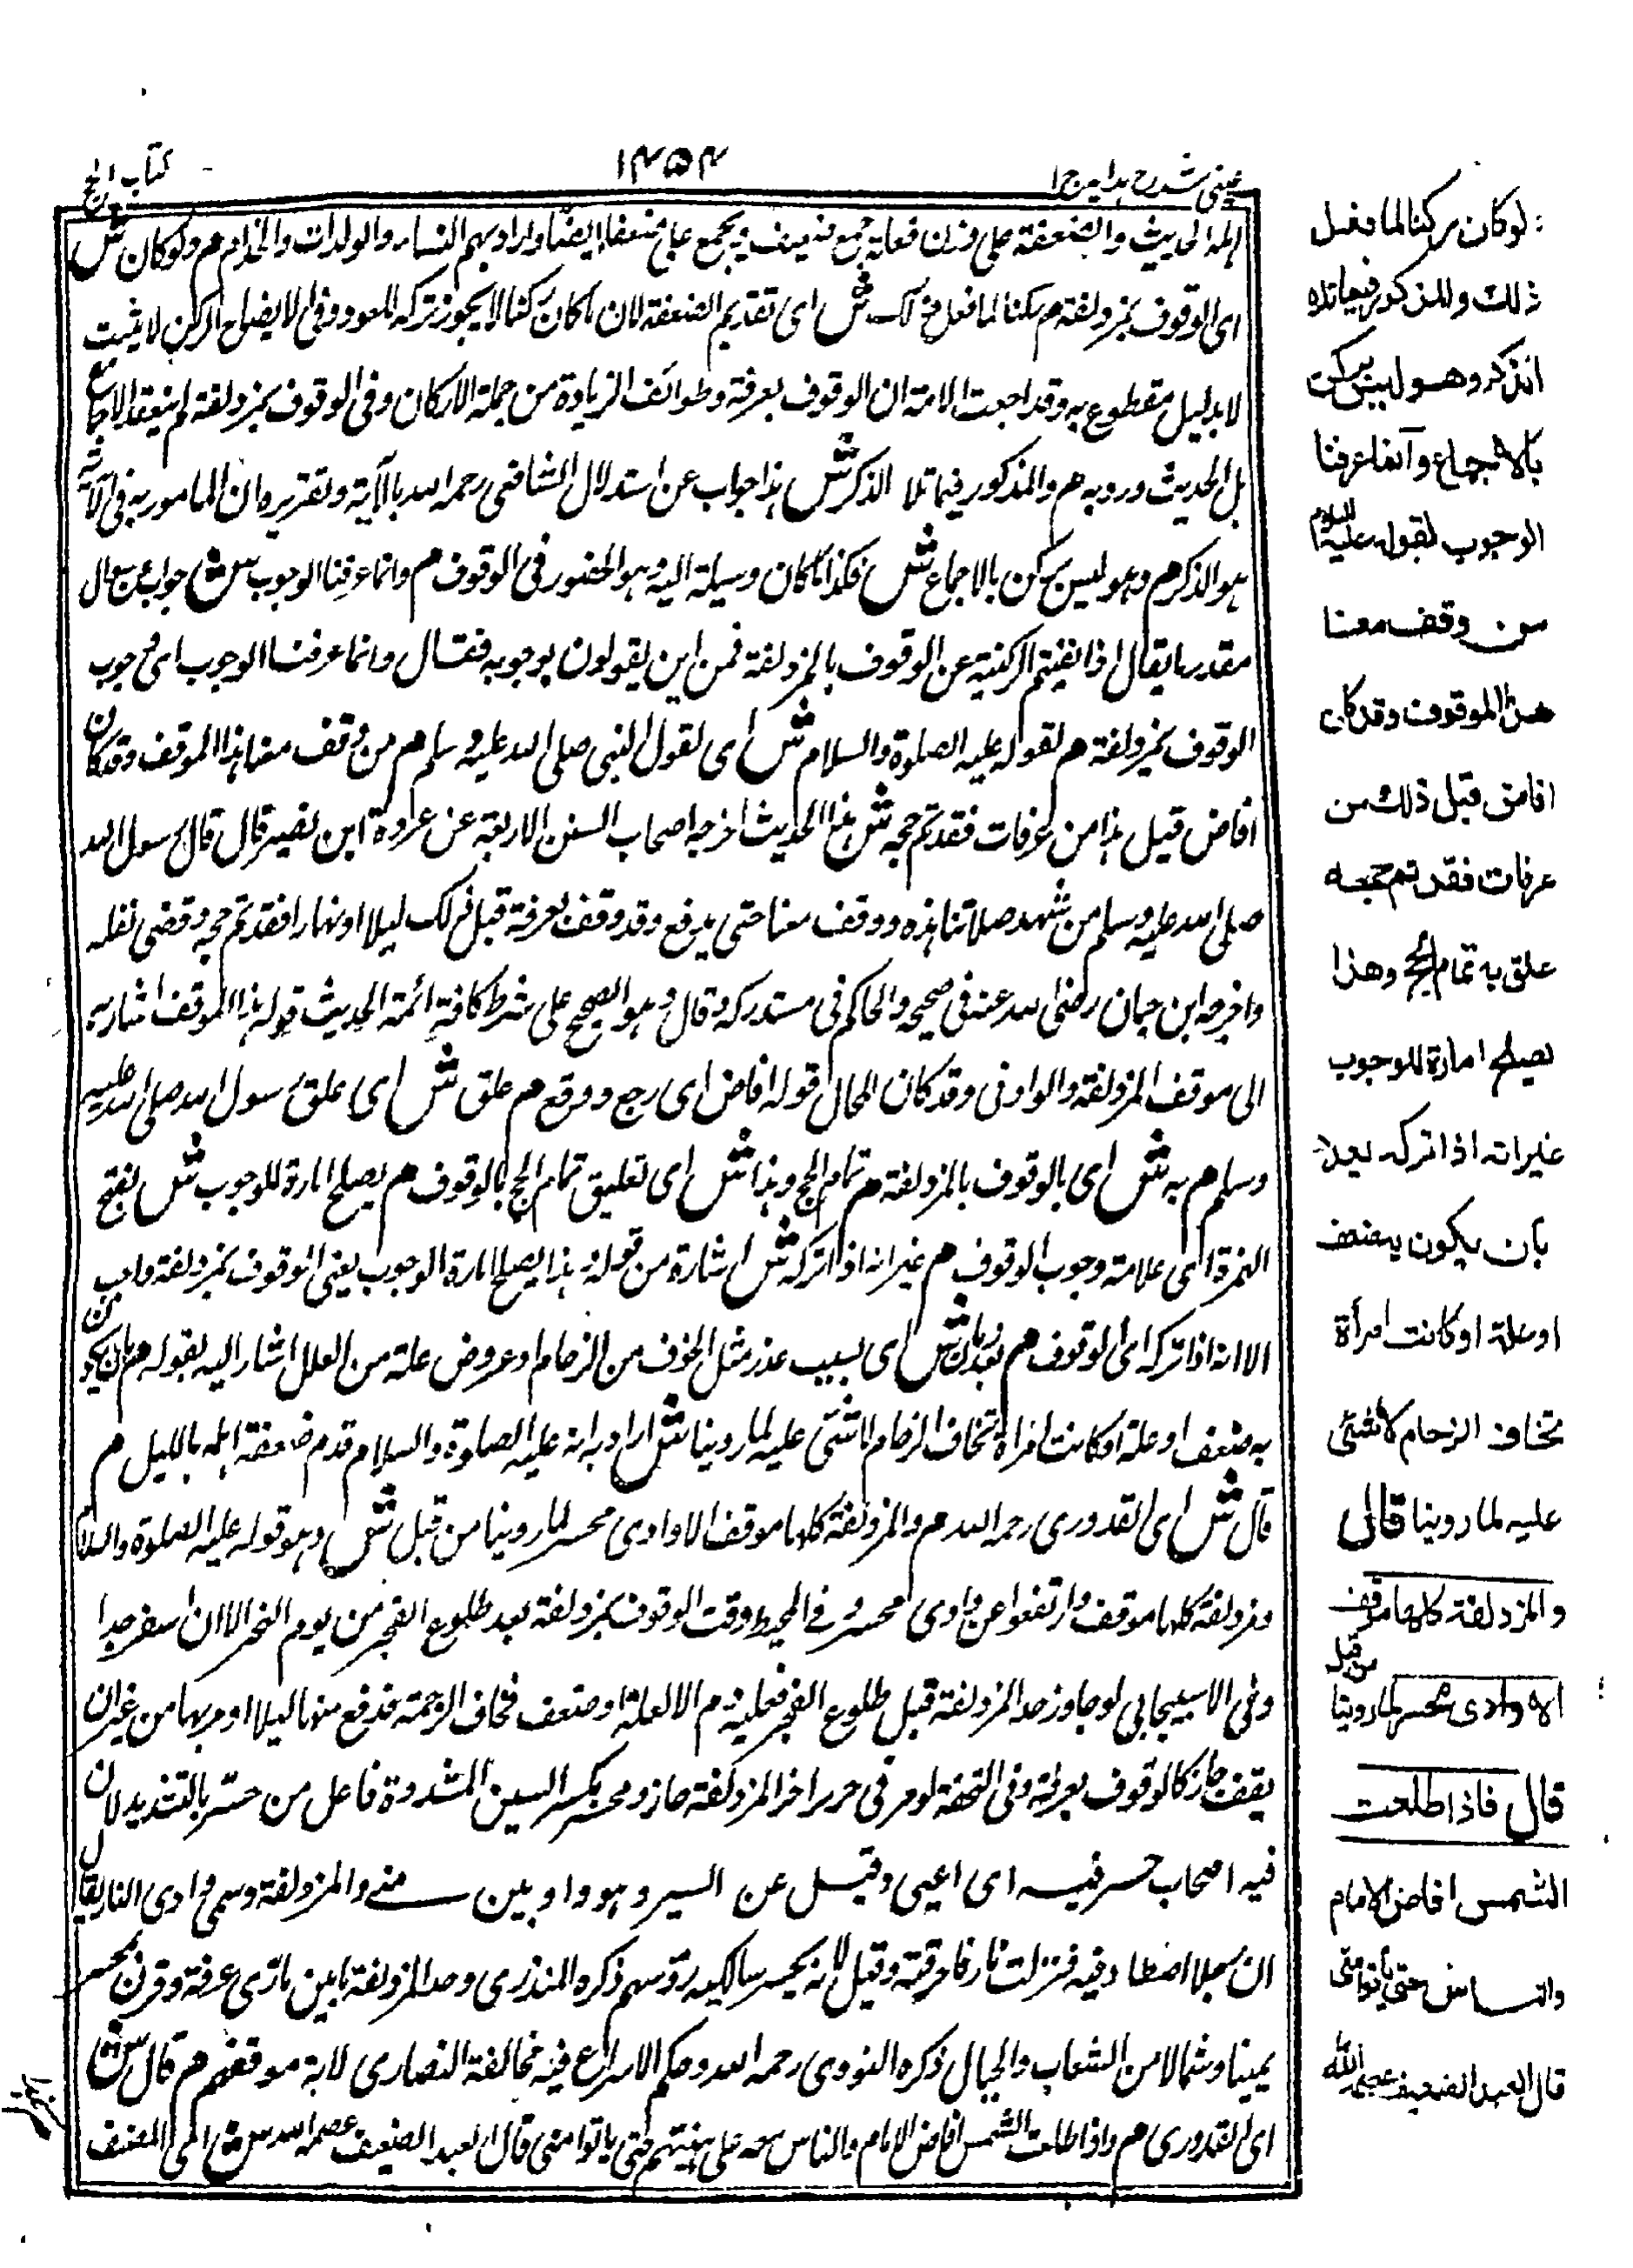 عینی شرح ہدایہ ج ۱
۱۴۵۴
کتاب الحج
اہلہ الحدیث والضعفة علی وزن فعلة جمع ضعیف ویجمع علی ضعفاء ایضا واراد بہم النساء والولدان والخدام م ولو کان ش
ای الوقوف بمزدلفة م رکنا لما فعل ذلک ش ای تقدیم الضعفة لان ما کان رکنا لا یجوز ترکہ للعذر وفی الایضاح الرکن لا یثبت
الا بدلیل مقطوع بہ وقد اجمعت الامة ان الوقوف بعرفة وطواف الزیادة من جملة الارکان وفی الوقوف بمزدلفة لم ینعقد الاجماع
بل الحدیث ورد بہ م والمذکور فیما تلا الذکر ش ہذا جواب عن استدلال الشافعی رحمہ اللہ بالآیة وتقریرہ ان المامور بہ فی الآیة
ہو الذکر م وہو لیس برکن بالاجماع ش فکذا ما کان وسیلة الیہ وہو الحضور فی الوقوف م وانما عرفنا الوجوب ش جواب عن سوال
مقدر بان یقال اذا نفیتم الرکنیة عن الوقوف بالمزدلفة فمن این یقولون بوجوبہ فقال وانما عرفنا الوجوب ای وجوب
الوقوف بمزدلفة م لقولہ علیہ الصلوة والسلام ش ای لقول النبی صلی اللہ علیہ وسلم م من وقف معنا ہذا الموقف وقد کان
افاض قبل ہذا من عرفات فقد تم حجہ ش ہذا الحدیث اخرجہ اصحاب السنن الاربعة عن عروة ابن نضیر قال قال رسول اللہ
صلی اللہ علیہ وسلم من شہد صلاتنا ہذہ ووقف معنا حتی یدفع وقد وقف بعرفة قبل ذلک لیلا او نہارا فقد تم حجہ وقضی تفثہ
واخرجہ ابن حبان رضی اللہ عنہ فی صحیحہ والحاکم فی مستدرکہ وقال وہو الصحیح علی شرط کافة ائمة الحدیث قولہ ہذا الموقف اشار بہ
الی موقف المزدلفة والواو فی وقد کان الحال قولہ افاض ای رجع ودفع م علق ش ای علق رسول اللہ صلی اللہ علیہ
وسلم م بہ ش ای بالوقوف بالمزدلفة م تمام الحج وہذا ش ای تعلیق تمام الحج بالوقوف م یصلح امارة للوجوب ش بفتح
الہمزة ای علامة وجوب الوقوف م غیر انہ اذا ترکہ ش اشارة من قولہ ہذا یصلح امارة الوجوب یعنی الوقوف بمزدلفة واجب
الا انہ اذا ترکہ ای الوقوف م بعذر ش ای بسبب عذر مثل الخوف من الزحام او عروض علة من العلل اشار الیہ بقولہ م بان یکون
بہ ضعف او علة او کانت امراة تخاف الزحام لا شئ علیہ لما روینا ش اراد بہ انہ علیہ الصلوة والسلام قدم ضعفة اہلہ باللیل م
قال ش ای القدوری رحمہ اللہ م والمزدلفة کلہا موقف الا وادی محسر لما روینا من قبل ش وہو قولہ علیہ الصلوة والسلام
ومزدلفة کلہا موقف وارتفعوا عن وادی محسر وفی المحیط وقت الوقوف بمزدلفة بعد طلوع الفجر من یوم النحر الا ان اسفر جدا
وفی الاسبیجابی لو جاوز حد المزدلفة قبل طلوع الفجر فعلیہ دم الا لعلة او ضعف فخاف الزحمة فدفع منہا لیلا او مر بہا من غیر ان
یقف جاز کالوقوف بعرفة وفی التحفة لو مر فی جزء اجزاء المزدلفة جاز ومحسر بکسر السین المشددة فاعل من حسر بالتشدید لان
فیہ اصحاب حسر فیہ ای اعیی وقیل عن السیر وہو واد بین منی والمزدلفة وسمی وادی النار یقال
ان رجلا اصطاد فیہ فنزلت نار فاحرقتہ وقیل لانہ یحسر سالکیہ ذکرہ المنذری وحد المزدلفة ما بین مازمی عرفة وقرن محسر
یمینا وشمالا من الشعاب والجبال ذکرہ النووی رحمہ اللہ وحکم الاسراع فیہ مخالفة النصاری لانہ موقفہم م قال ش
ای القدوری م واذا طلعت الشمس افاض الامام والناس معہ علی ہینتہم حتی یاتوا منی قال العبد الضعیف عصمہ اللہ ش ای المصنف
لو کان رکنا لما فعل
ذلک والمذکور فیما تلاہ
الذکر وھو لیس برکن
بالاجماع وانما عرفنا
الوجوب لقولہ علیہ السلام
من وقف معنا
ھذا الموقف وقد کان
افاض قبل ذلک من
عرفات فقد تم حجہ
علق بہ تمام الحج وھذا
یصلح امارة للوجوب
غیر انہ اذا ترکہ بعذر
بان یکون بہ ضعف
او علة او کانت امرأة
تخاف الزحام لا شئ
علیہ لما روینا قال
والمزدلفة کلھا موقف
الا وادی محسر لما روینا من قبل
قال فاذا طلعت
الشمس افاض الامام
والناس حتی یأتوا منی
قال العبد الضعیف عصمہ اللہ